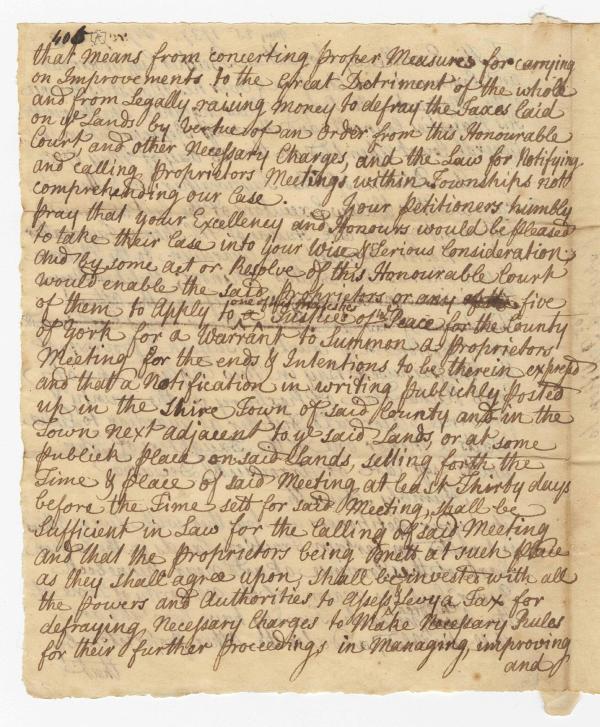 406
that means from concerting proper Measures for carrying
on Improvements to the Great Detriment of the whole
and from Legally raising money to defray the Taxes Laid
on ye Lands by vertue of an Order from this Honourable
Court, and other Necessary Charges, and the Law for Notifying
and calling Proprietors Meetings within Townships nott
comprehending our Case. Your Petitioners humbly
Pray that your Excellency and Honours would be pleased
to take their Case into your Wise & Serious Consideration
And by some act or Resolve of this Honourable Court
would enable the said Proprietors or any five
one of his Majesties
of them to Apply to a Justices of ye Peace for the County
of York for a Warrant to Summon a Proprietors
Meeting for the ends & Intentions to be therein expresd
and that a Notification in writing publickly posted
up in the Shire Town of said County and in the
Town next adjacent to ye said Lands, or at some
publick place on said Lands, setting forth the
Time & place of said Meeting at least Thirty days
before the Time sett for said Meeting, shall be
Sufficient in Law for the Calling of said Meeting
And that the Proprietors being mett at such place
as they shall agree upon, shall be invested with all
the Powers and Authorities to Assess & Levy a Tax for
defraying Necessary Charges to Make Necessary Rules
for their further Proceedings in Managing, improving
and